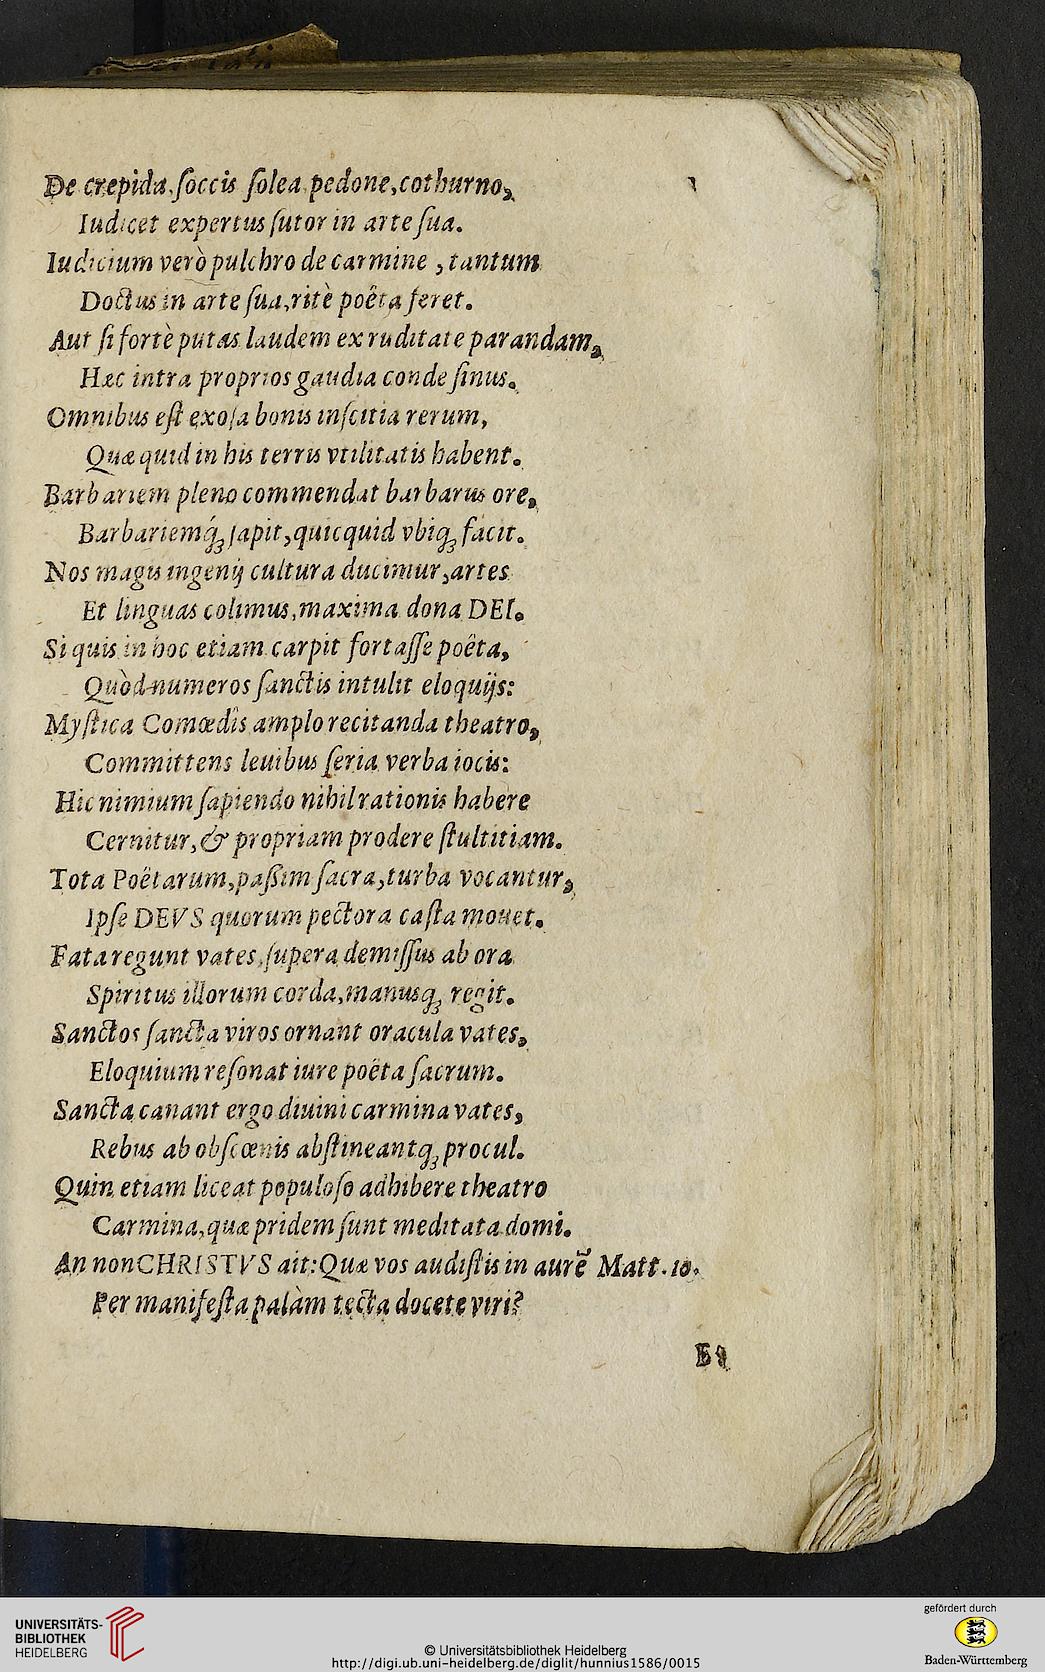 De crepida, ſoccis ſolea pedone, cothurno,
Iudicet expertus ſutor in arte ſua.
Iudicium verò pulchro de carmine, tantum
Doctus in arte ſua, ritè poëta feret.
Aut ſi fortè putas laudem ex ruditate parandam,
Hæc intra proprios gaudia conde ſinus.
Omnibus eſt exoſa bonis inſcitia rerum,
Quæ quid in his terris vtilitatis habent.
Barbariem pleno commendat barbarus ore,
Barbariemq́ꝫ ſapit, quicquid vbiqꝫ facit.
Nos magis ingenij cultura ducimur, artes
Et linguas colimus, maxima dona DEI.
Si quis in hoc etiam carpit fortaſſe poëta,
Quòd numeros ſanctis intulit eloquijs:
Myſtica Comœdîs amplo recitanda theatro,
Committens leuibus ſeria verba iocis:
Hic nimium ſapiendo nihil rationis habere
Cernitur, & propriam prodere ſtultitiam.
Tota Poëtarum, paßim ſacra, turba vocantur,
Ipſe DEVS quorum pectora caſta mouet.
Fata regunt vates, ſupera demiſſus ab ora
Spiritus illorum corda, manusqꝫ regit.
Sanctos ſancta viros ornant oracula vates,
Eloquium reſonat iure poëta ſacrum.
Sancta canant ergo diuini carmina vates,
Rebus ab obſcœnis abſtineantqꝫ procul.
Quin etiam liceat populoſo adhibere theatro
Carmina, quæ pridem ſunt meditata domi.
An non CHRISTVS ait: Quæ vos audiſtis in aurẽ Matt. 10.
Per manifeſta palàm tecta docete viri?
UNIVERSITÄTS-
BIBLIOTHEK
HEIDELBERG
© Universitätsbibliothek Heidelberg
http://digi.ub.uni-heidelberg.de/diglit/hunnius1586/0015
gefördert durch
Baden-Württemberg